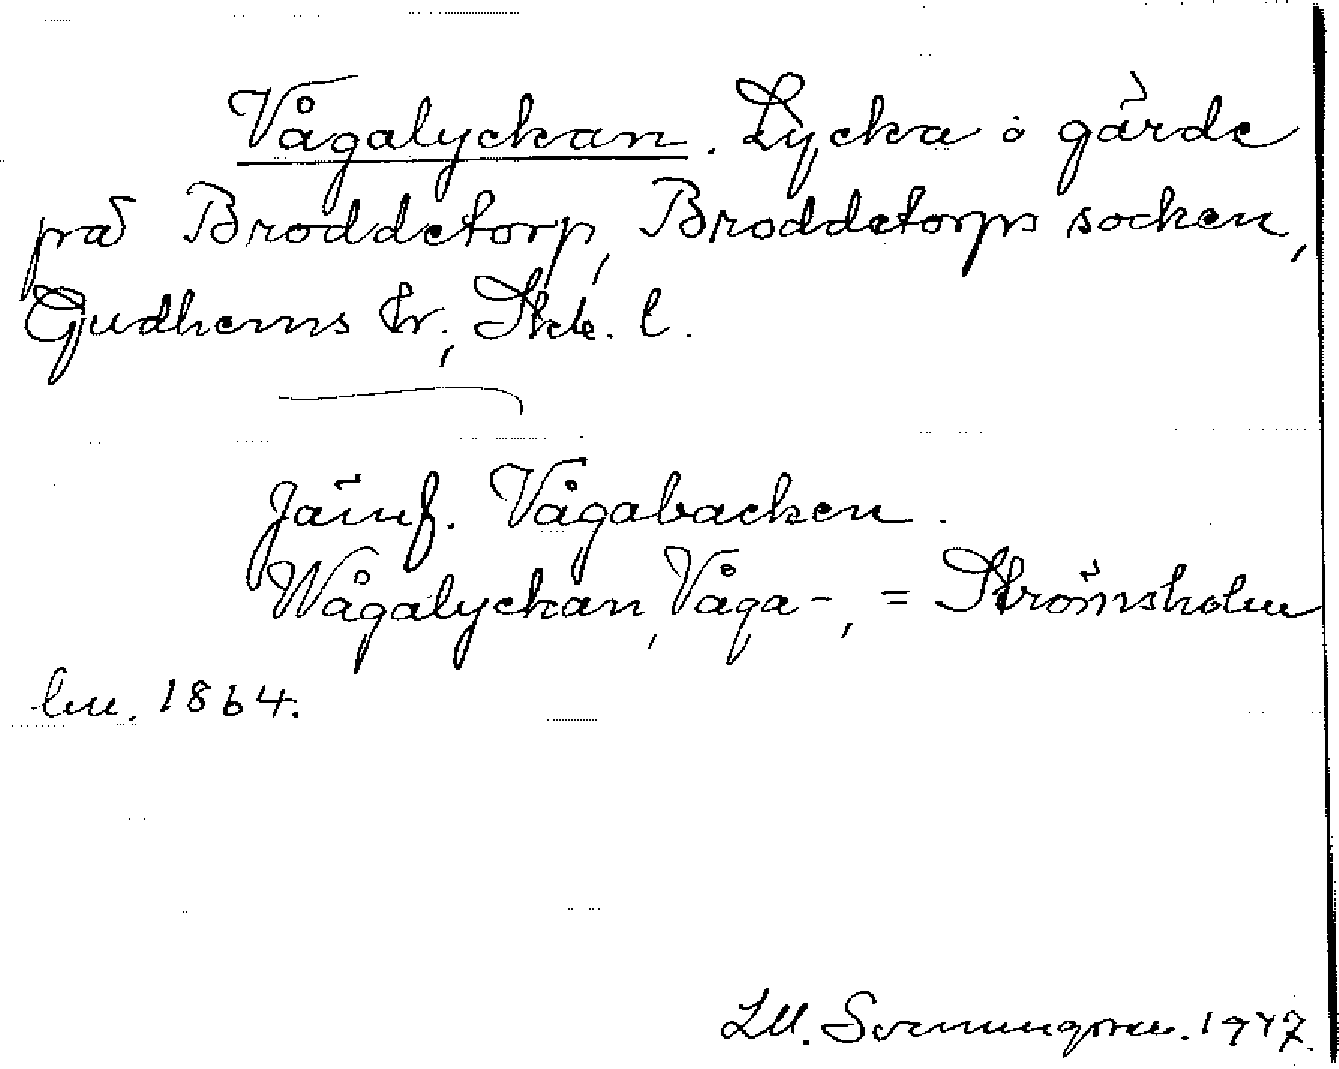 Vågalyckan. Lycka o gärde
på Broddetorp, Broddetorps socken,
Gudhems hr., Skb. l.
Jämf. Vågabacken.
Wågalyckan, Våga-, = Strömsholm
lm. 1864.
1947.